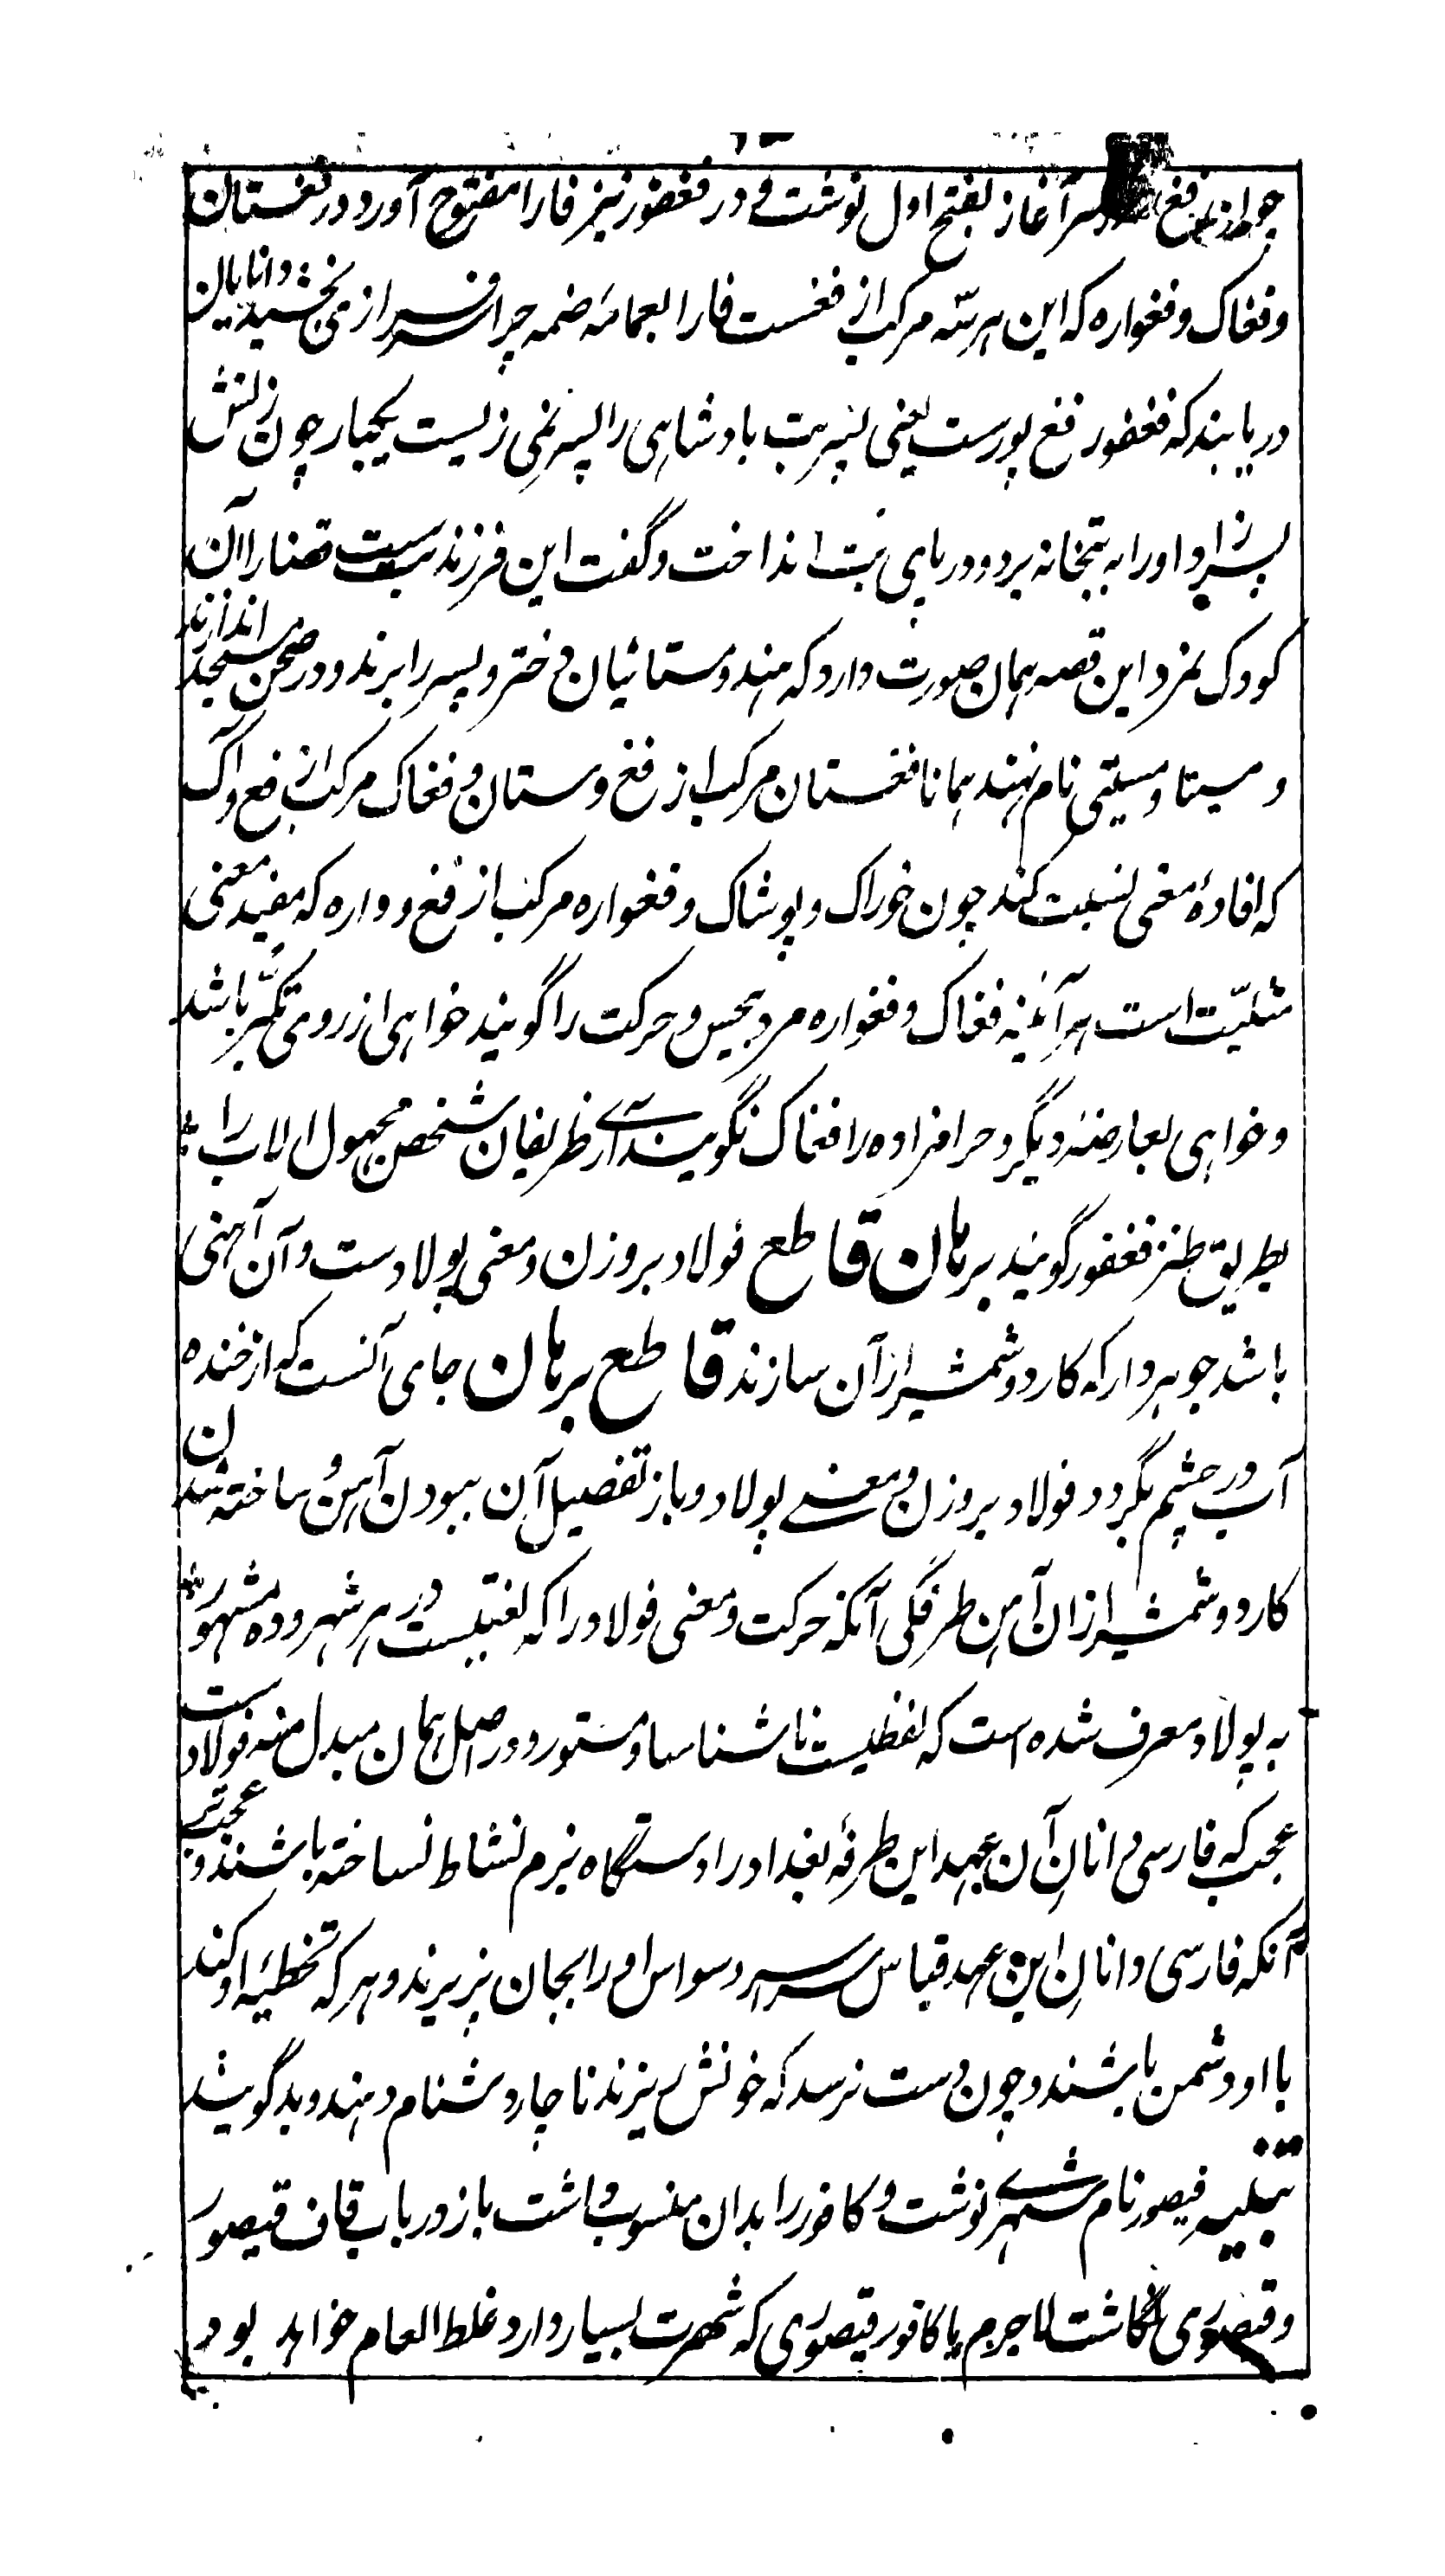 چون فغ سرآغاز بفتح اول نوشت و در فغفور نیز فا را مفتوح آورد در فغستان
و فغاک و فغواره که این هر سه مرکب از فغست فا را بعمامهٔ ضمه چرا سرافرازی بخشید دانایان
دریابند که فغفور فغ پورست یعنی پسر بت بادشاهی را پسر نمی زیست یکبار چون زنش
پسر زاد او را به بتخانه برد و در پای بت انداخت و گفت این فرزند بت ست قضا را آن
کودک نمرد این قصه همان صورت دارد که هندوستانیان دختر و پسر را برند و در صحن مسجد اندازند
و مسیتا و مسیتی نام نهند همانا فغستان مرکب از فغ و ستان و فغاک مرکب از فغ و اک
که افادهٔ معنی نسبت کند چون خوراک و پوشاک و فغواره مرکب از فغ و واره که مفید معنی
مثلیّت است هرآئینه فغاک و فغواره مرد بیحس و حرکت را گویند خواهی از روی تکبّر باشد
و خواهی بعارضهٔ دیگر و حرامزاده را فغاک نگویند آرے ظریفان شخص مجهول الاب را
بطریق طنز فغفور گویند برهان قاطع فولاد بر وزن و معنی پولادست و آن آهنی
باشد جوهردار که کارد و شمشیر از آن سازند قاطع برهان جای آنست که از خنده
آب در چشم بگردد فولاد بر وزن و معنے پولاد و باز تفصیل آن ببودن آهن و ساخته شدن
کارد و شمشیر ازان آهن طرفگی آنکه حرکت و معنی فولاد را که لغتیست در هر شهر و ده مشهور
به پولاد معرف شده است که لفظیست ناشناسا و مستور و در اصل همان مبدل منه فولادست
عجب که فارسی دانانِ آن عهد این طرفهٔ بغداد را دستگاه بزم نشاط نساخته باشند و عجب تر
آنکه فارسی دانانِ این عهد قیاس سراسر وسواس او را بجان پذیرند و هر که تخطیهٔ او کند
با او دشمن باشند و چون دست نرسد که خونش ریزند ناچار دشنام دهند و بد گویند
تنبیہ فیصور نام شهرے نوشت و کافور را بدان منسوب داشت باز در باب قاف قیصور
و قیصوری نگاشت لاجرم یا کافور قیصوری که شهرت بسیار دارد غلط العام خواهد بود